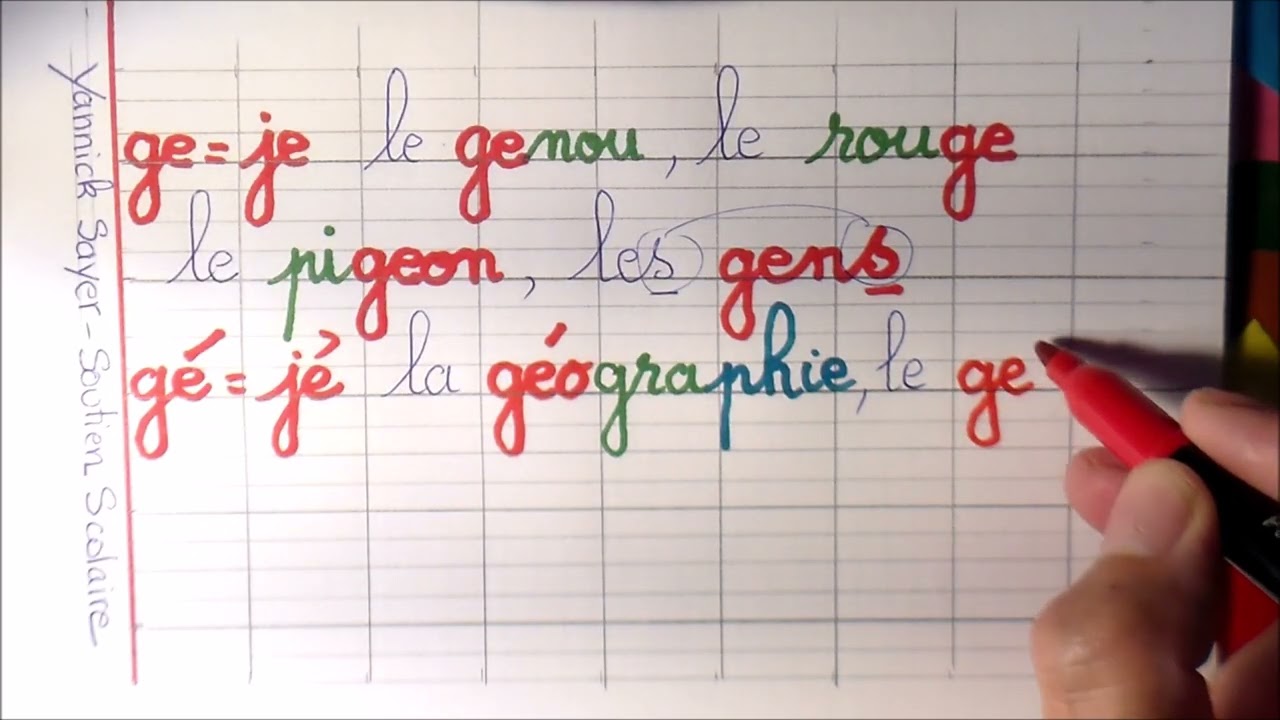 ge = je le genou, le rouge
le pigeon, les gens
gé = jé la géographie, le ge
Yannick Sayer - Soutien Scolaire